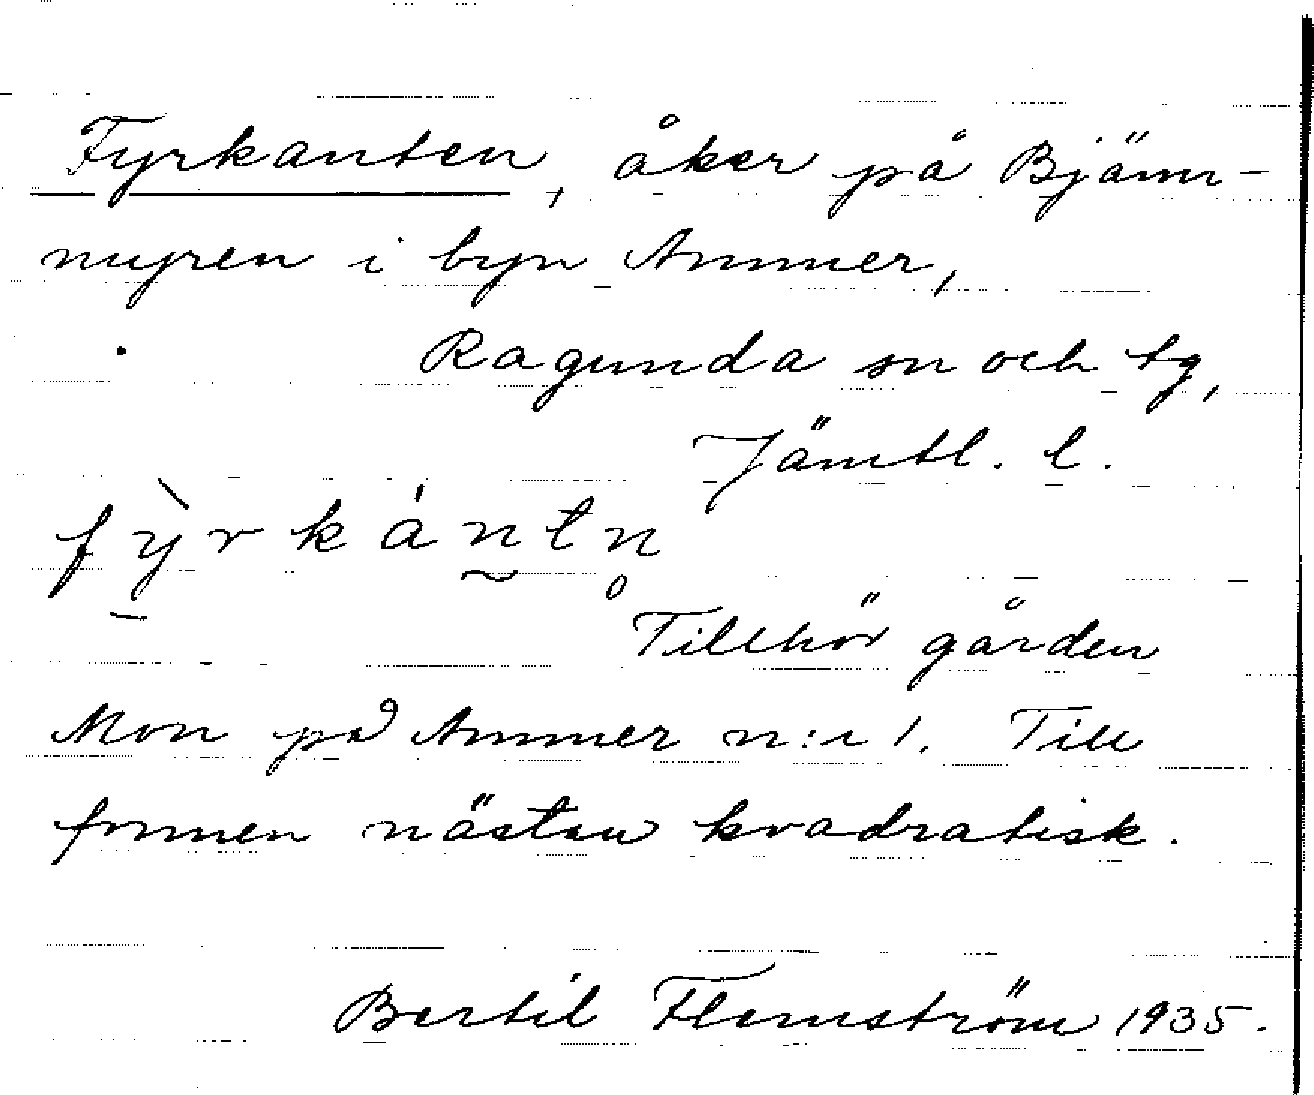 Fyrkanten, åker på Bjäm-
myren i byn Ammer,
Ragunda sn och tg,
Jämtl. l.
fỳ̠rkántn̥
Tillhör gården
Mon på Ammer n:r 1. Till
formen nästan kvadratisk.
Bertil Flemström 1935.